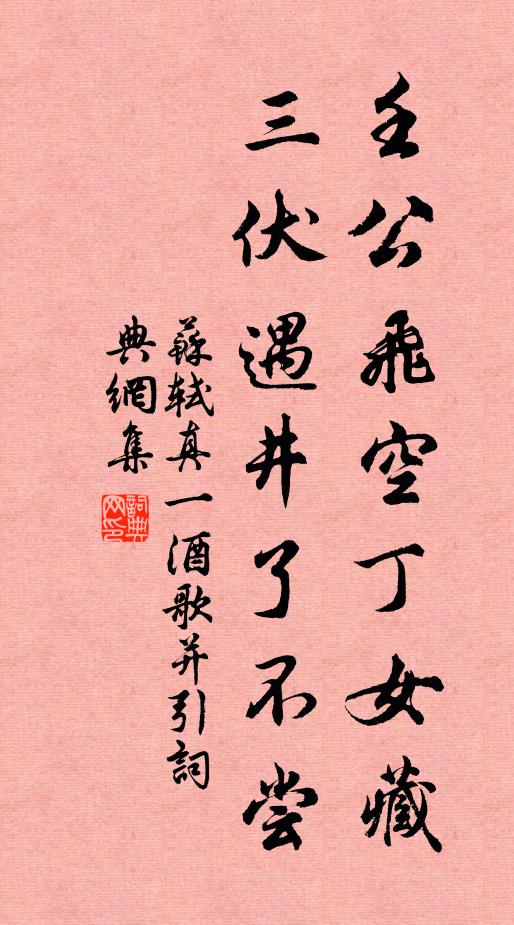 壬公飛空丁女藏
三伏遇井了不尝
蘇軾真一酒歌并引詞
典網集
詞典网印